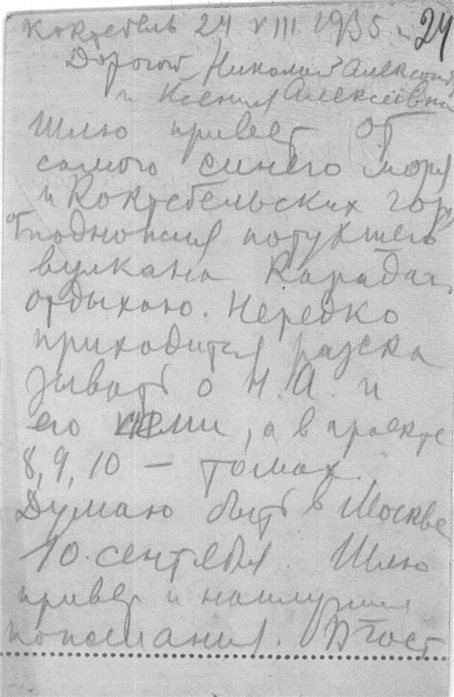 Коктебель 24 VIII 1935 г. 24
Дорогой Николай Александ
и Ксения Алексеевна
Шлю привет от
самого синего моря
и Коктебельских гор
от подножия потухшего
вулкана Карадаг.
отдыхаю. Нередко
приходится расска
зывать о Н.А. и
его, а в проекте
8, 9, 10 — томах.
Думаю быть в Москве
10. сентября. Шлю
привет и наилучшия
пожелания.